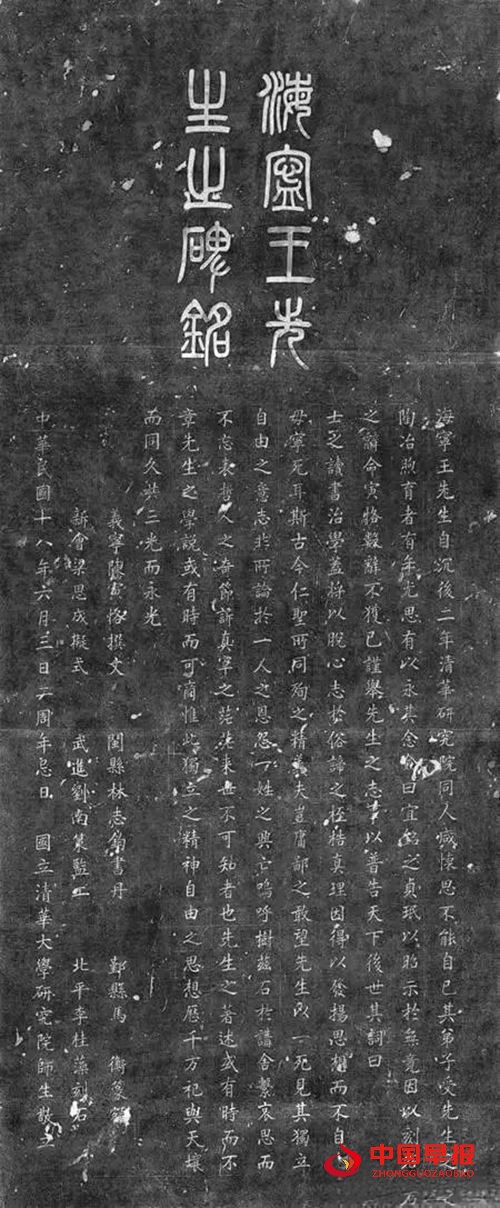 海寧王先
生之碑銘
海寧王先生自沉後二年清華研究院同人咸懷思不能自已其弟子受先生之
陶冶煦育者有年尤思有以永其念僉曰宜銘之貞珉以昭示於無竟因以刻石
之辭命寅恪數辭不獲已謹舉先生之志事以普告天下後世其詞曰
士之讀書治學蓋將以脫心志於俗諦之桎梏真理因得以發揚思想而不自由
毋寧死耳斯古今仁聖所同殉之精義夫豈庸鄙之敢望先生以一死見其獨立
自由之意志非所論於一人之恩怨一姓之興亡嗚呼樹茲石於講舍繫哀思而
不忘表哲人之奇節訴真宰之茫茫來世不可知者也先生之著述或有時而不
章先生之學說或有時而可商惟此獨立之精神自由之思想歷千万祀與天壤
而同久共三光而永光
義寧陳寅恪撰文 閩縣林志鈞書丹 鄞縣馬衡篆額
新會梁思成擬式 武進劉南策監工 北平李桂藻刻石
中華民國十八年六月三日二周年忌日 國立清華大學研究院師生敬立
中国早报
ZHONGGUOZAOBAO